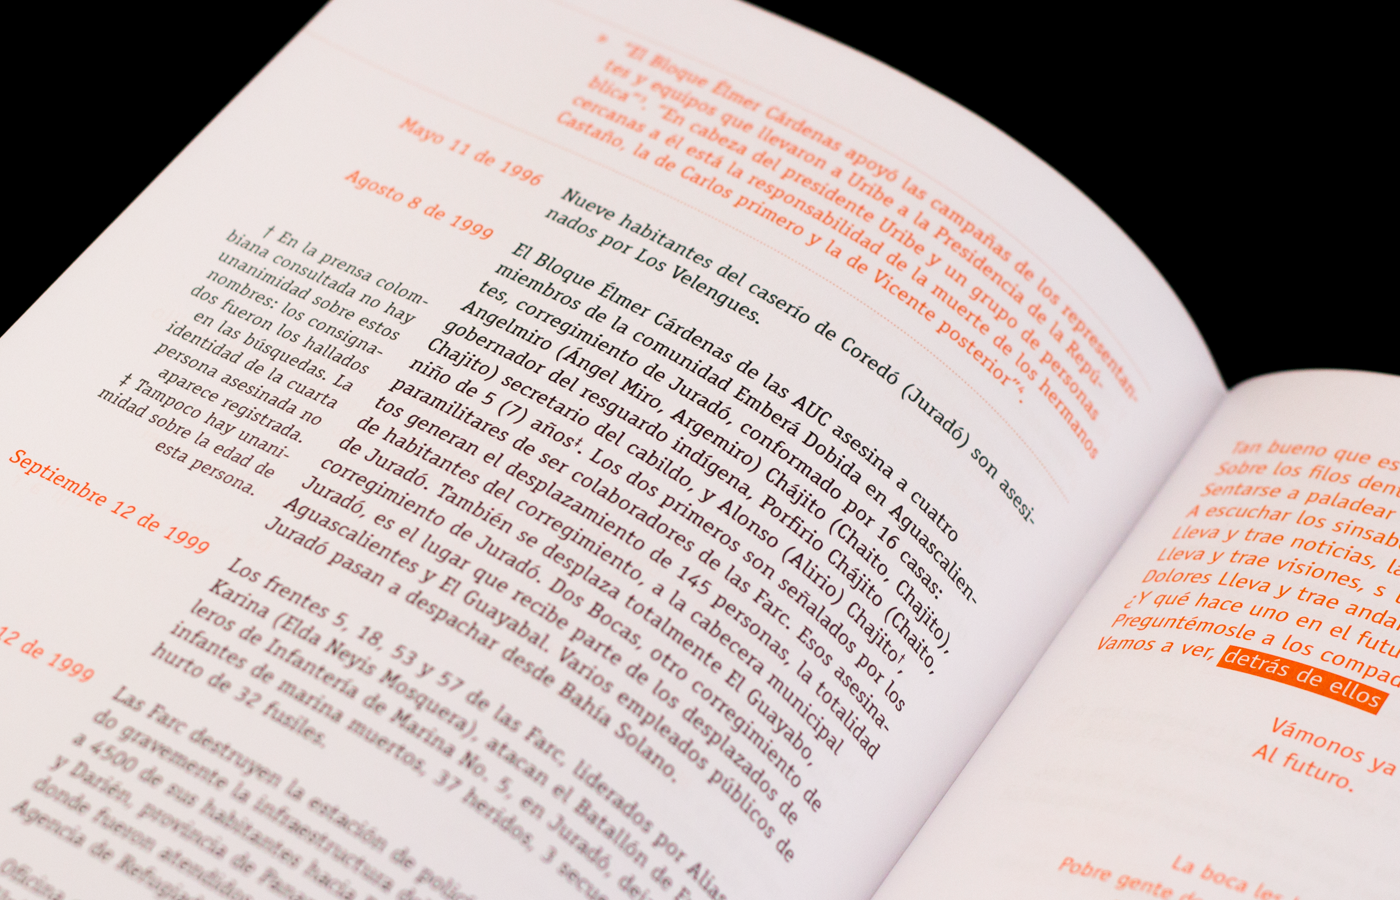 " "El Bloque Élmer Cárdenas apoyó las campañas de los representan-
tes y equipos que llevaron a Uribe a la Presidencia de la Repú-
blica"³. "En cabeza del presidente Uribe y un grupo de personas
cercanas a él está la responsabilidad de la muerte de los hermanos
Castaño, la de Carlos primero y la de Vicente posterior"⁴.
Mayo 11 de 1996
Nueve habitantes del caserío de Coredó (Juradó) son asesi-
nados por Los Velengues.
Agosto 8 de 1999
El Bloque Élmer Cárdenas de las AUC asesina a cuatro
miembros de la comunidad Emberá Dobida en Aguascalien-
tes, corregimiento de Juradó, conformado por 16 casas:
Angelmiro (Ángel Miro, Argemiro) Chájito (Chaito, Chajito),
gobernador del resguardo indígena, Porfirio Chájito (Chaito,
Chajito) secretario del cabildo, y Alonso (Alirio) Chajito†,
niño de 5 (7) años‡. Los dos primeros son señalados por los
paramilitares de ser colaboradores de las Farc. Esos asesina-
tos generan el desplazamiento de 145 personas, la totalidad
de habitantes del corregimiento, a la cabecera municipal
de Juradó. También se desplaza totalmente El Guayabo,
corregimiento de Juradó. Dos Bocas, otro corregimiento de
Juradó, es el lugar que recibe parte de los desplazados de
Aguascalientes y El Guayabal. Varios empleados públicos de
Juradó pasan a despachar desde Bahía Solano.
† En la prensa colom-
biana consultada no hay
unanimidad sobre estos
nombres: los consigna-
dos fueron los hallados
en las búsquedas. La
identidad de la cuarta
persona asesinada no
aparece registrada.
‡ Tampoco hay unani-
midad sobre la edad de
esta persona.
Septiembre 12 de 1999
Los frentes 5, 18, 53 y 57 de las Farc, liderados por Alias
Karina (Elda Neyis Mosquera), atacan el Batallón de F
leros de Infantería de Marina No. 5, en Juradó, dej
infantes de marina muertos, 37 heridos, 3 secu
hurto de 32 fusiles.
12 de 1999
Las Farc destruyen la estación de polic
do gravemente la infraestructura
a 4500 de sus habitantes hacia
y Darién, provincia de Pana
donde fueron atendidos
Agencia de Refugia
Oficina
Tan bueno que es
Sobre los filos den
Sentarse a paladear
A escuchar los sinsab
Lleva y trae noticias, la
Lleva y trae visiones, s t
Dolores Lleva y trae anda
¿Y qué hace uno en el futu
Preguntémosle a los compad
Vamos a ver, detrás de ellos
Vámonos ya
Al futuro.
La boca les
Pobre gente de